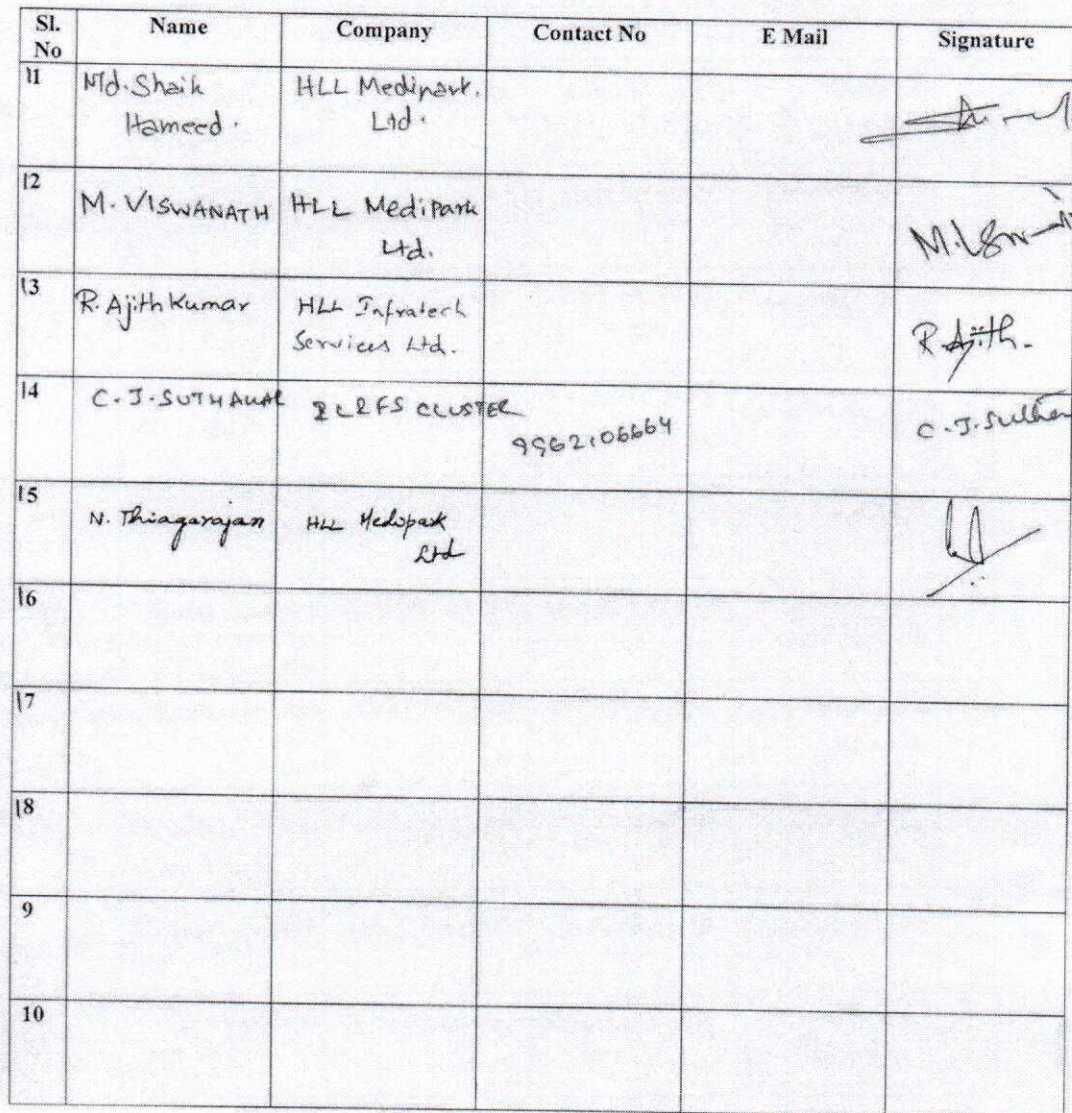 Sl. No Name Company Contact No E Mail Signature
11 Md. Shaik HLL Medipark.
Hameed. Ltd.
12 M. VISWANATH HLL Medipark
Ltd.
13 R. Ajith Kumar HLL Infratech
Services Ltd. R. Ajith.
14 C. J. SUTHAKAR CLUSTER 9962106664 C. J.
15 N. Thiagarajan HLL Medipark
Ltd
16
17
18
9
10